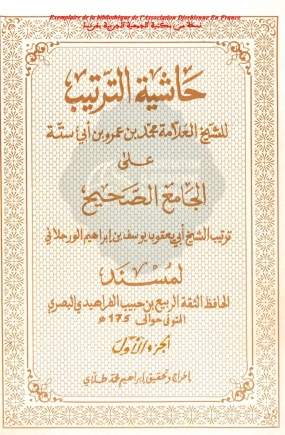 Exemplaire de la bibliothèque de l'Association Djerbienne En France
نسخة من مكتبة الجمعية الجربية بفرنسا
حاشية الترتيب
للشيخ العلامة محمد بن عمرو بن أبي ستة
على
الجامع الصحيح
ترتيب الشيخ أبي يعقوب يوسف بن إبراهيم الورجلاني
لمسند
الحافظ الثقة الربيع بن حبيب الفراهيدي البصري
المتوفى حوالي 175 هـ
الجزء الأول
إخراج وتحقيق إبراهيم محمد طلاي